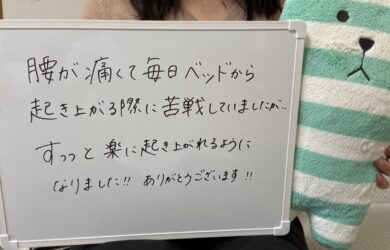 腰が痛くて毎日ベッドから
起き上がる際に苦戦していましたが、
すっっと楽に起き上がれるように
なりました!! ありがとうございます!!